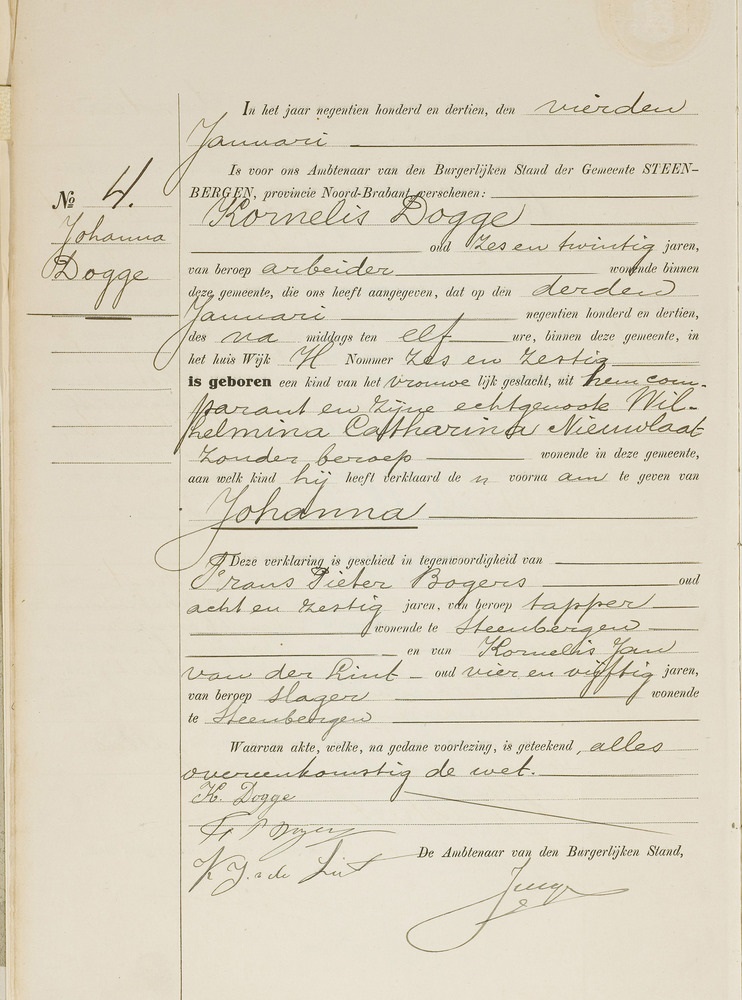 In het jaar negentien honderd en dertien, den vierden
Januari
Is voor ons Ambtenaar van den Burgerlijken Stand der Gemeente STEEN-
BERGEN, provincie Noord-Brabant, verschenen:
No 4.
Johanna
Dogge
Kornelis Dogge
oud zes en twintig jaren,
van beroep arbeider wonende binnen
deze gemeente, die ons heeft aangegeven, dat op den derden
Januari negentien honderd en dertien,
des na middags ten elf ure, binnen deze gemeente, in
het huis Wijk H Nommer zes en zestig
is geboren een kind van het vrouwe lijk geslacht, uit hem com-
parant en zijne echtgenoote Wil-
helmina Catharina Nieuwlaat
zonder beroep wonende in deze gemeente,
aan welk kind hij heeft verklaard de n voorna am te geven van
Johanna
Deze verklaring is geschied in tegenwoordigheid van
Frans Pieter Bogers oud
acht en zestig jaren, van beroep tapper
wonende te Steenbergen
en van Kornelis Jan
van der Lint oud vier en vijftig jaren,
van beroep slager wonende
te Steenbergen
Waarvan akte, welke, na gedane voorlezing, is geteekend, alles
overeenkomstig de wet.
K. Dogge
De Ambtenaar van den Burgerlijken Stand,